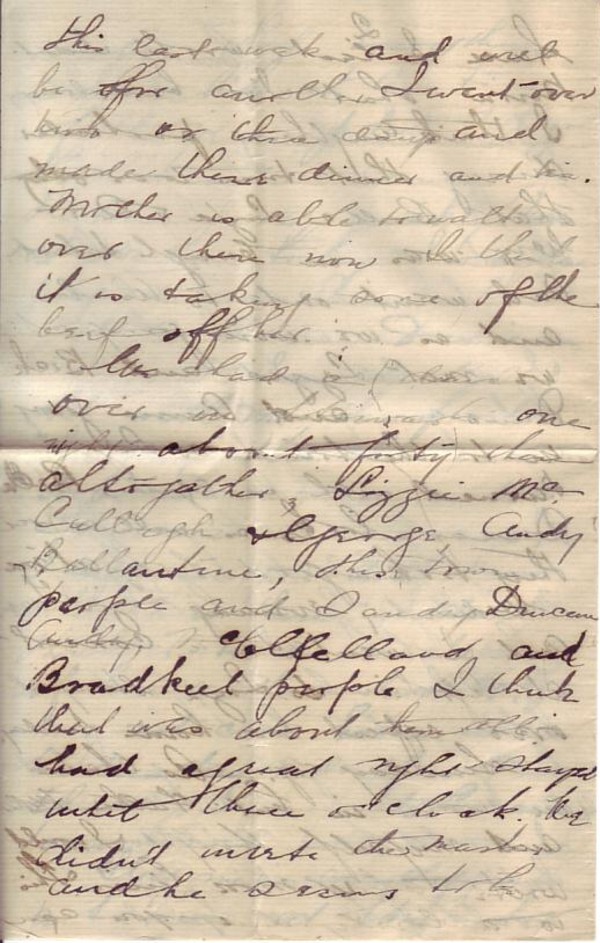 this last week and will
be for another I went over
two or three days and
made their dinner and tea.
Mother is able to walk
over there now I think
it is taking some of the
beef off her.
We had
over in one
night about forty
altogether, Lizzie Mc
Cullogh & George, Andy
Ballantine, the town
people and Duncan
Clelland and
Bradkeel people I think
that was about them all. I
had a great night stayed
untill three o clock. We
didn't invite the Master
and he seems to be